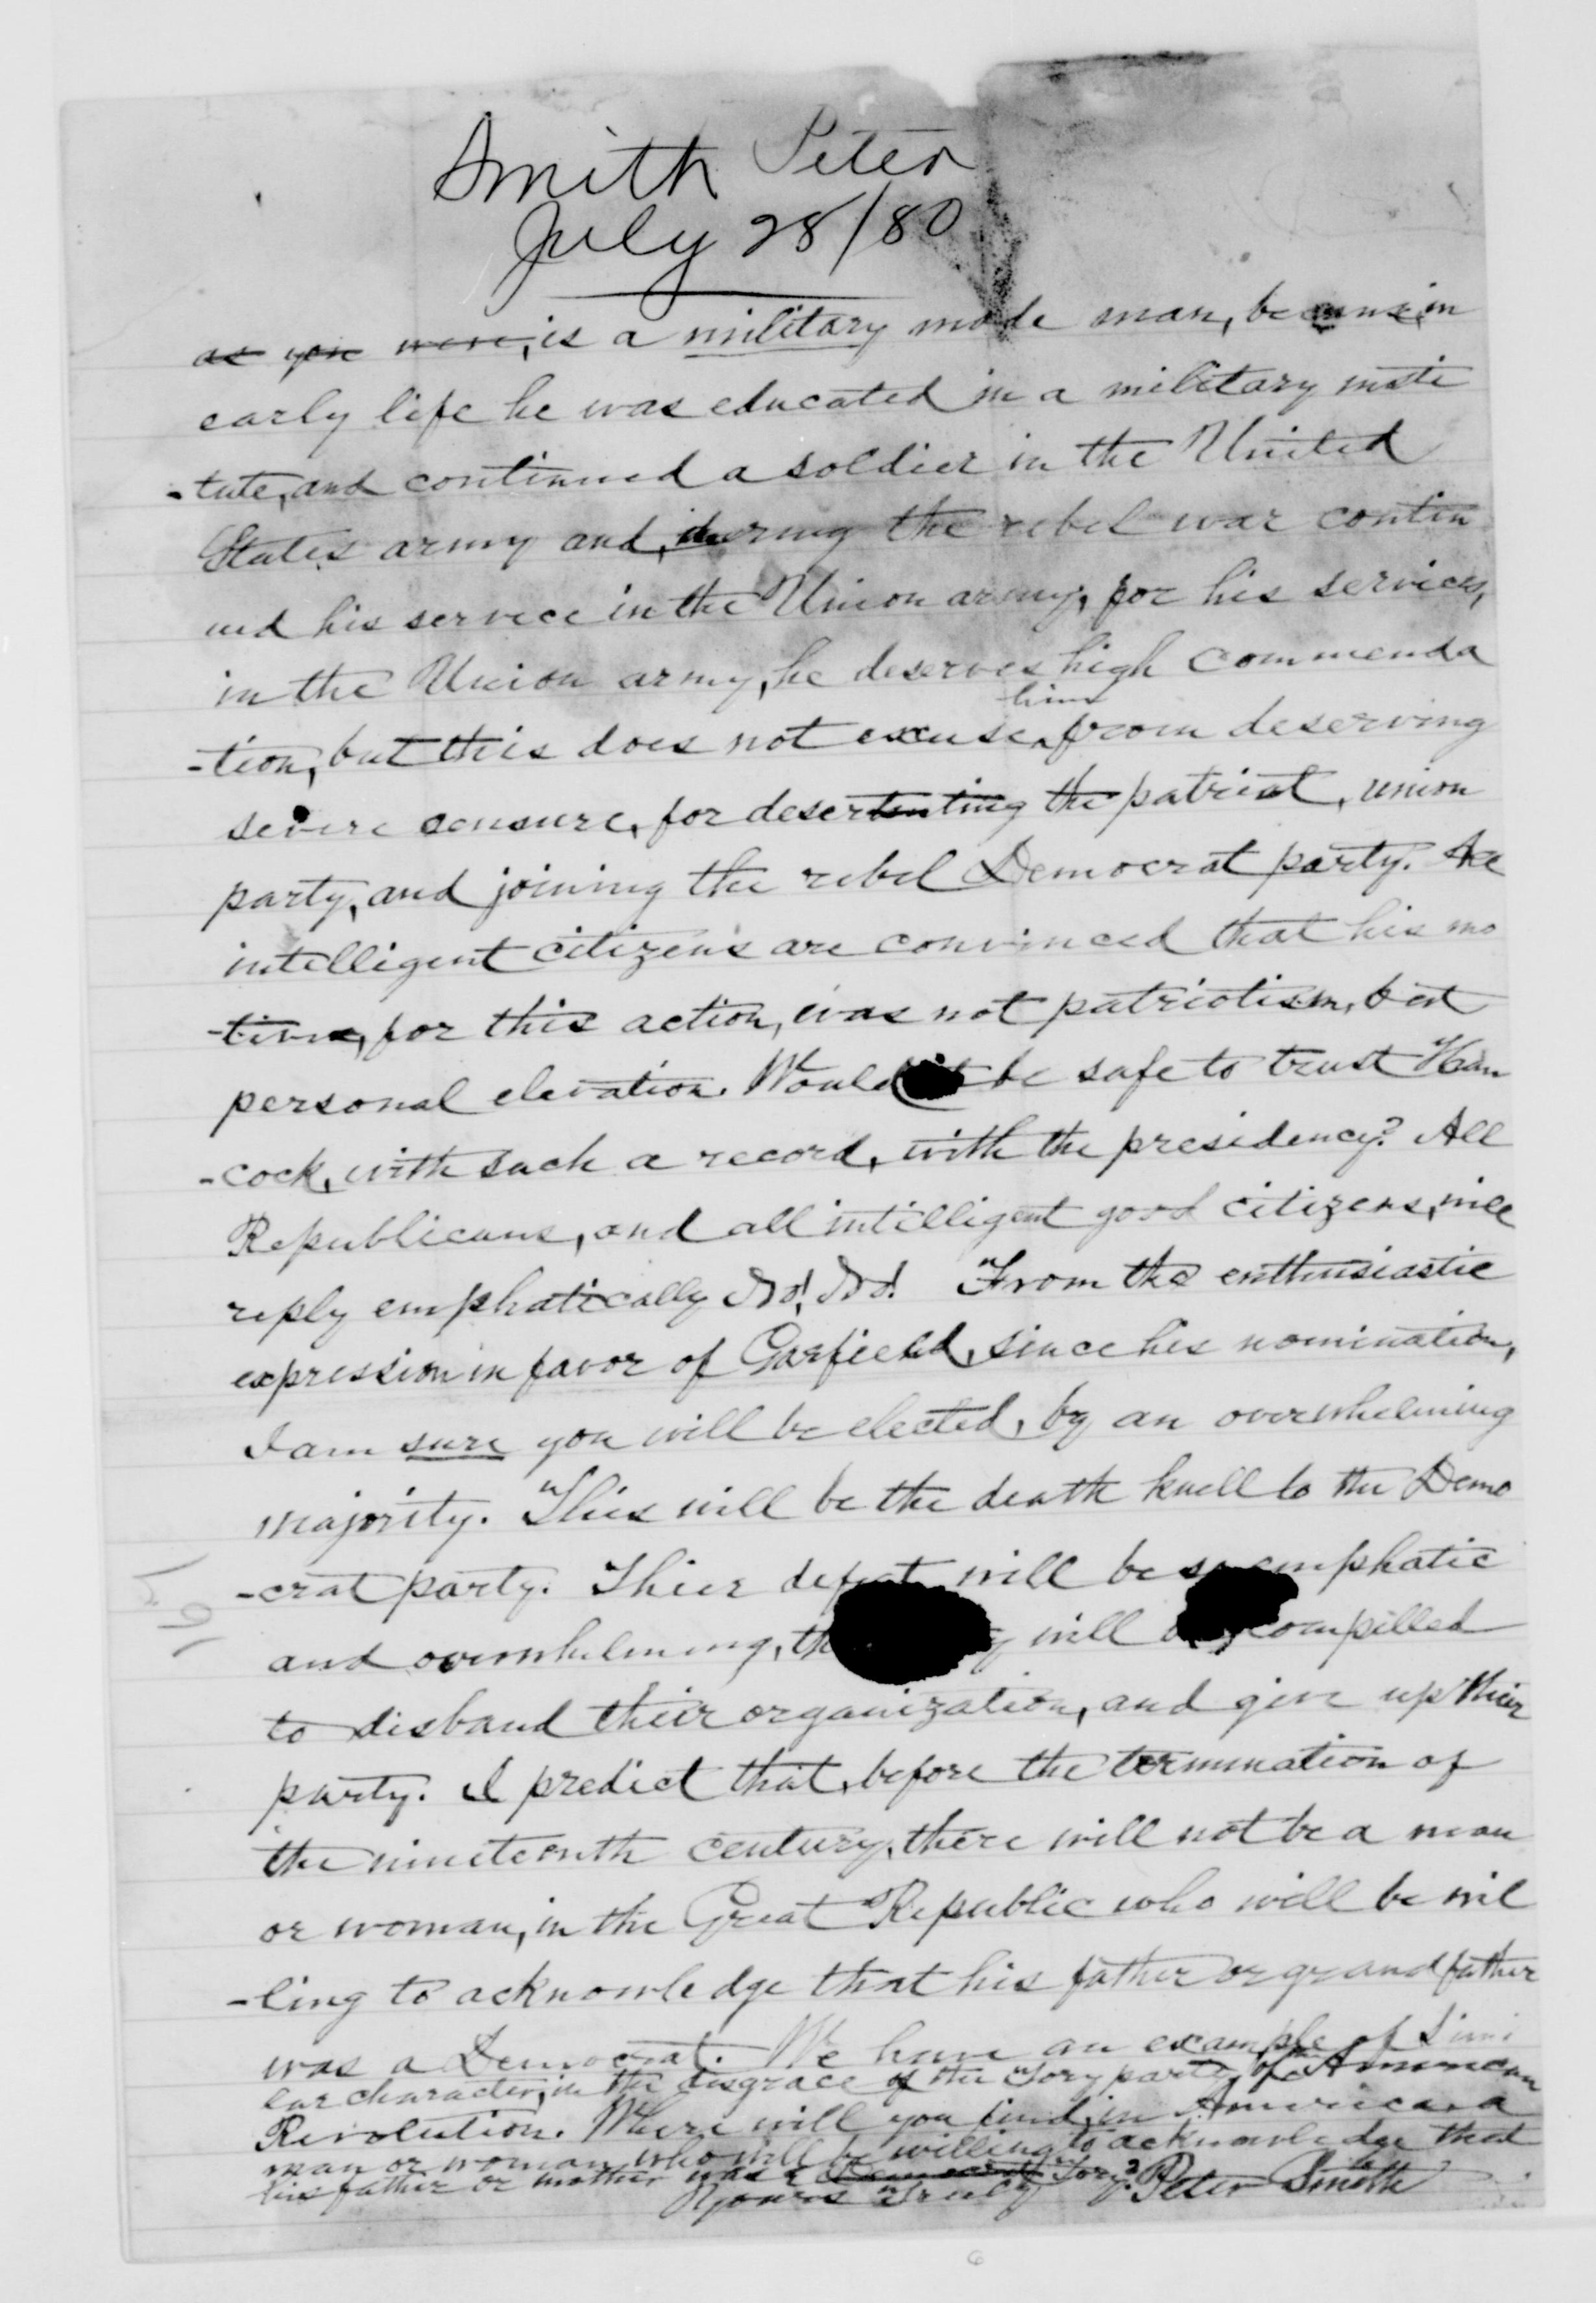 Smith Peter
July 28/80
as you were, is a military made man, because in
early life he was educated in a military insti
-tute, and continued a soldier in the United
States army and, during the rebel war contin
ued his service in the Union army, for his services,
in the Union army, he deserves high commenda
him
-tion, but this does not excuse from deserving
severe censure, for deserting the patriot, union
party, and joining the rebel Democrat party. The
intelligent citizens are convinced that his mo
-tive, for this action, was not patriotism, but
personal elevation. Would it be safe to trust Han
-cock, with such a record, with the presidency? All
Republicans, and all intelligent good citizens, will
reply emphatically No! No! From the enthusiastic
expression in favor of Garfield, since his nomination,
I am sure you will be elected, by an overwhelming
majority. This will be the death knell to the Demo
-crat party. Thier defeat will be so emphatic
and overwhelming, will be compelled
to disband their organization, and give up thier
party. I predict that, before the termination of
the nineteenth century, there will not be a man
or woman, in the Great Republic who will be wil
-ling to acknowledge that his father or grandfather
was a Democrat. We have an example of simi
lar character, in the disgrace of the Tory party, of the American
Revolution. Where will you find, in America, a
man or woman who will be willing to acknowledge that
his father or mother was a Democrat Tory? Peter Smith
Yours Truly